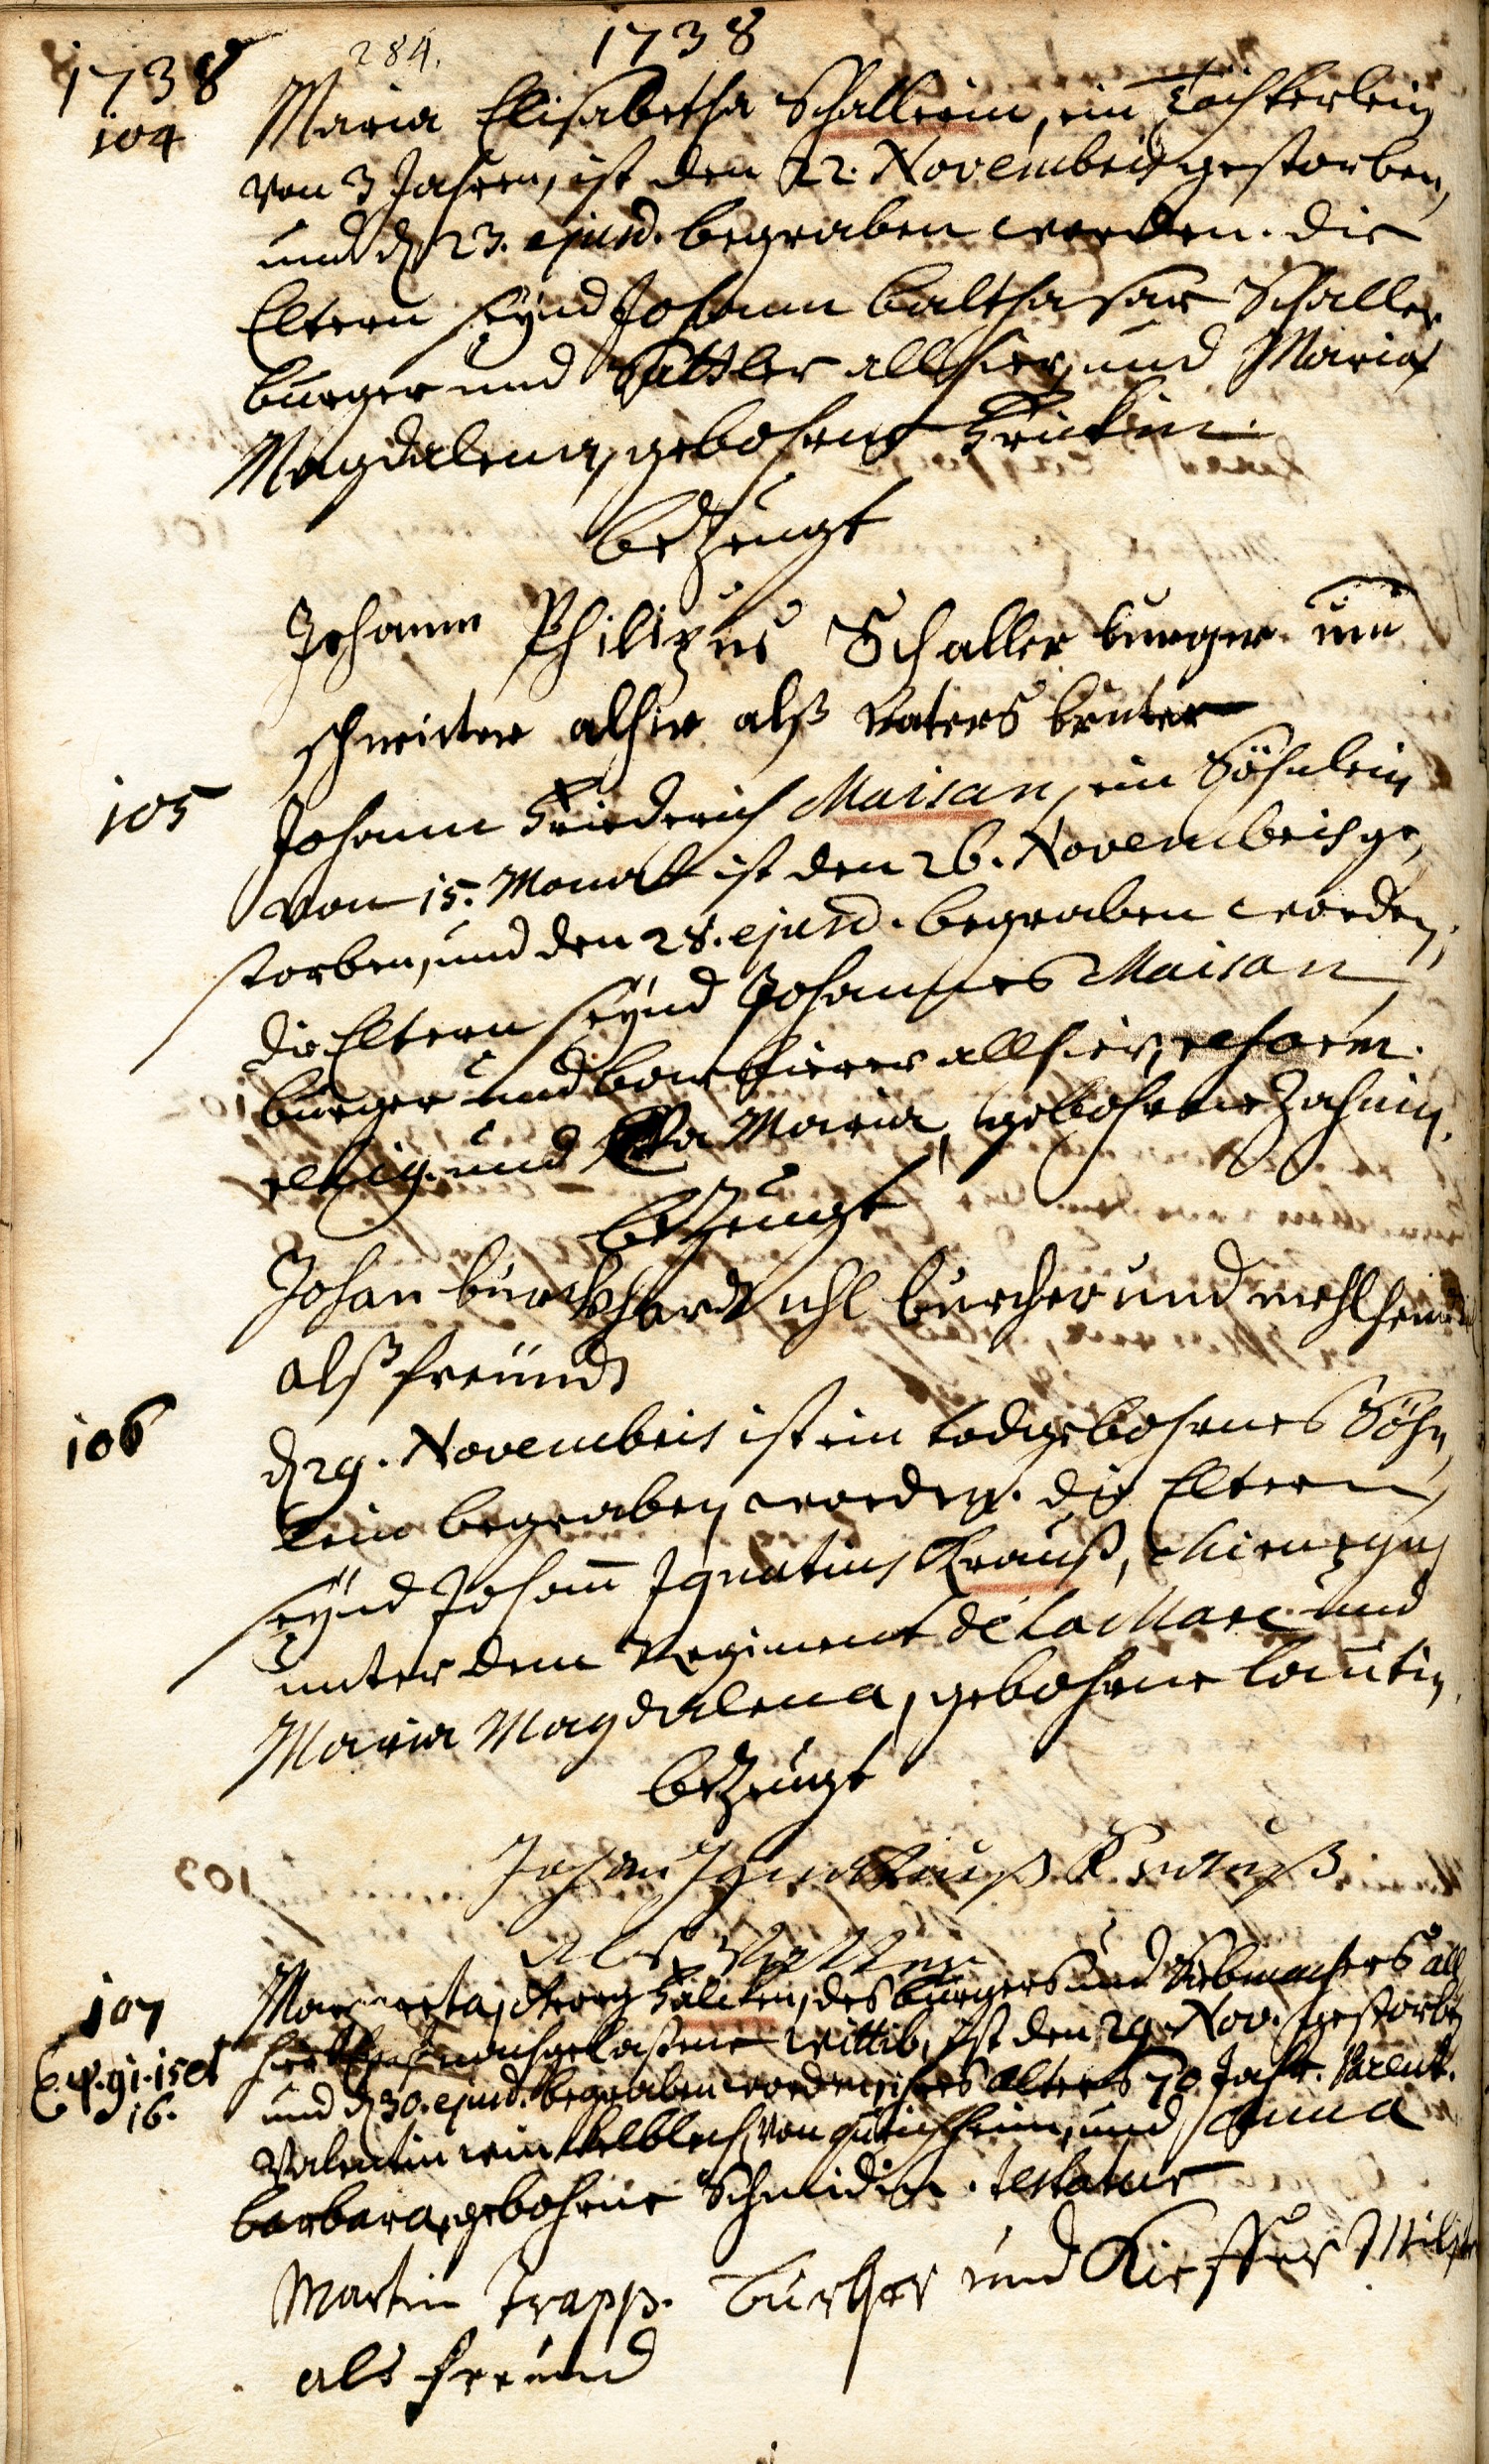 1738 284. 1738
104 Maria Elisabetha Schallerin, ein Töchterlein
von 3 Jahren, ist den 22. Novembris gestorben,
und d 23. ejusd. begraben worden. die
Eltern seynd Johann Balthasar Schaller
burger und Sattler allhier, und Maria
Magdalena, gebohrne
bezeugt
Johann Philipus Schaller burger un
schneider alhir alß Vaters bruter
105 Johann Friderich Maisan, ein Söhnlein
von 15. Monath ist den 26. Novembris ge
storben, und den 28. ejusd. begraben worden,
die Eltern seynd Johannes Maisan
burger und allhier, reform.
relig. und Eva Maria, gebohrne Zahnin.
bezeugt
Johan burckhardt uhl burcher und mehl
alß freund
106 d 29. Novembris ist ein todgebohrnes Söhn
lein begraben worden. die Eltern
seynd Johann Ignatius Krauß, Chirurgus
unter dem Regiment de la Marc und
Maria Magdalena, gebohrne Lautin.
bezeugt
Johan Ignatiuß Krauß
als Vatter
107 Margareta, Georg des burgers und Siebmachers all
hier nachgelassene wittib, ist den 29. Nov. gestorben
16. und d 30. ejusd. begraben worden, ihres alters 70 Jahr. Parent.
Valentin von und Anna
barbara, gebohrne Schmidin. testatur
Martin Trapp. burger und Kieffer
als freund